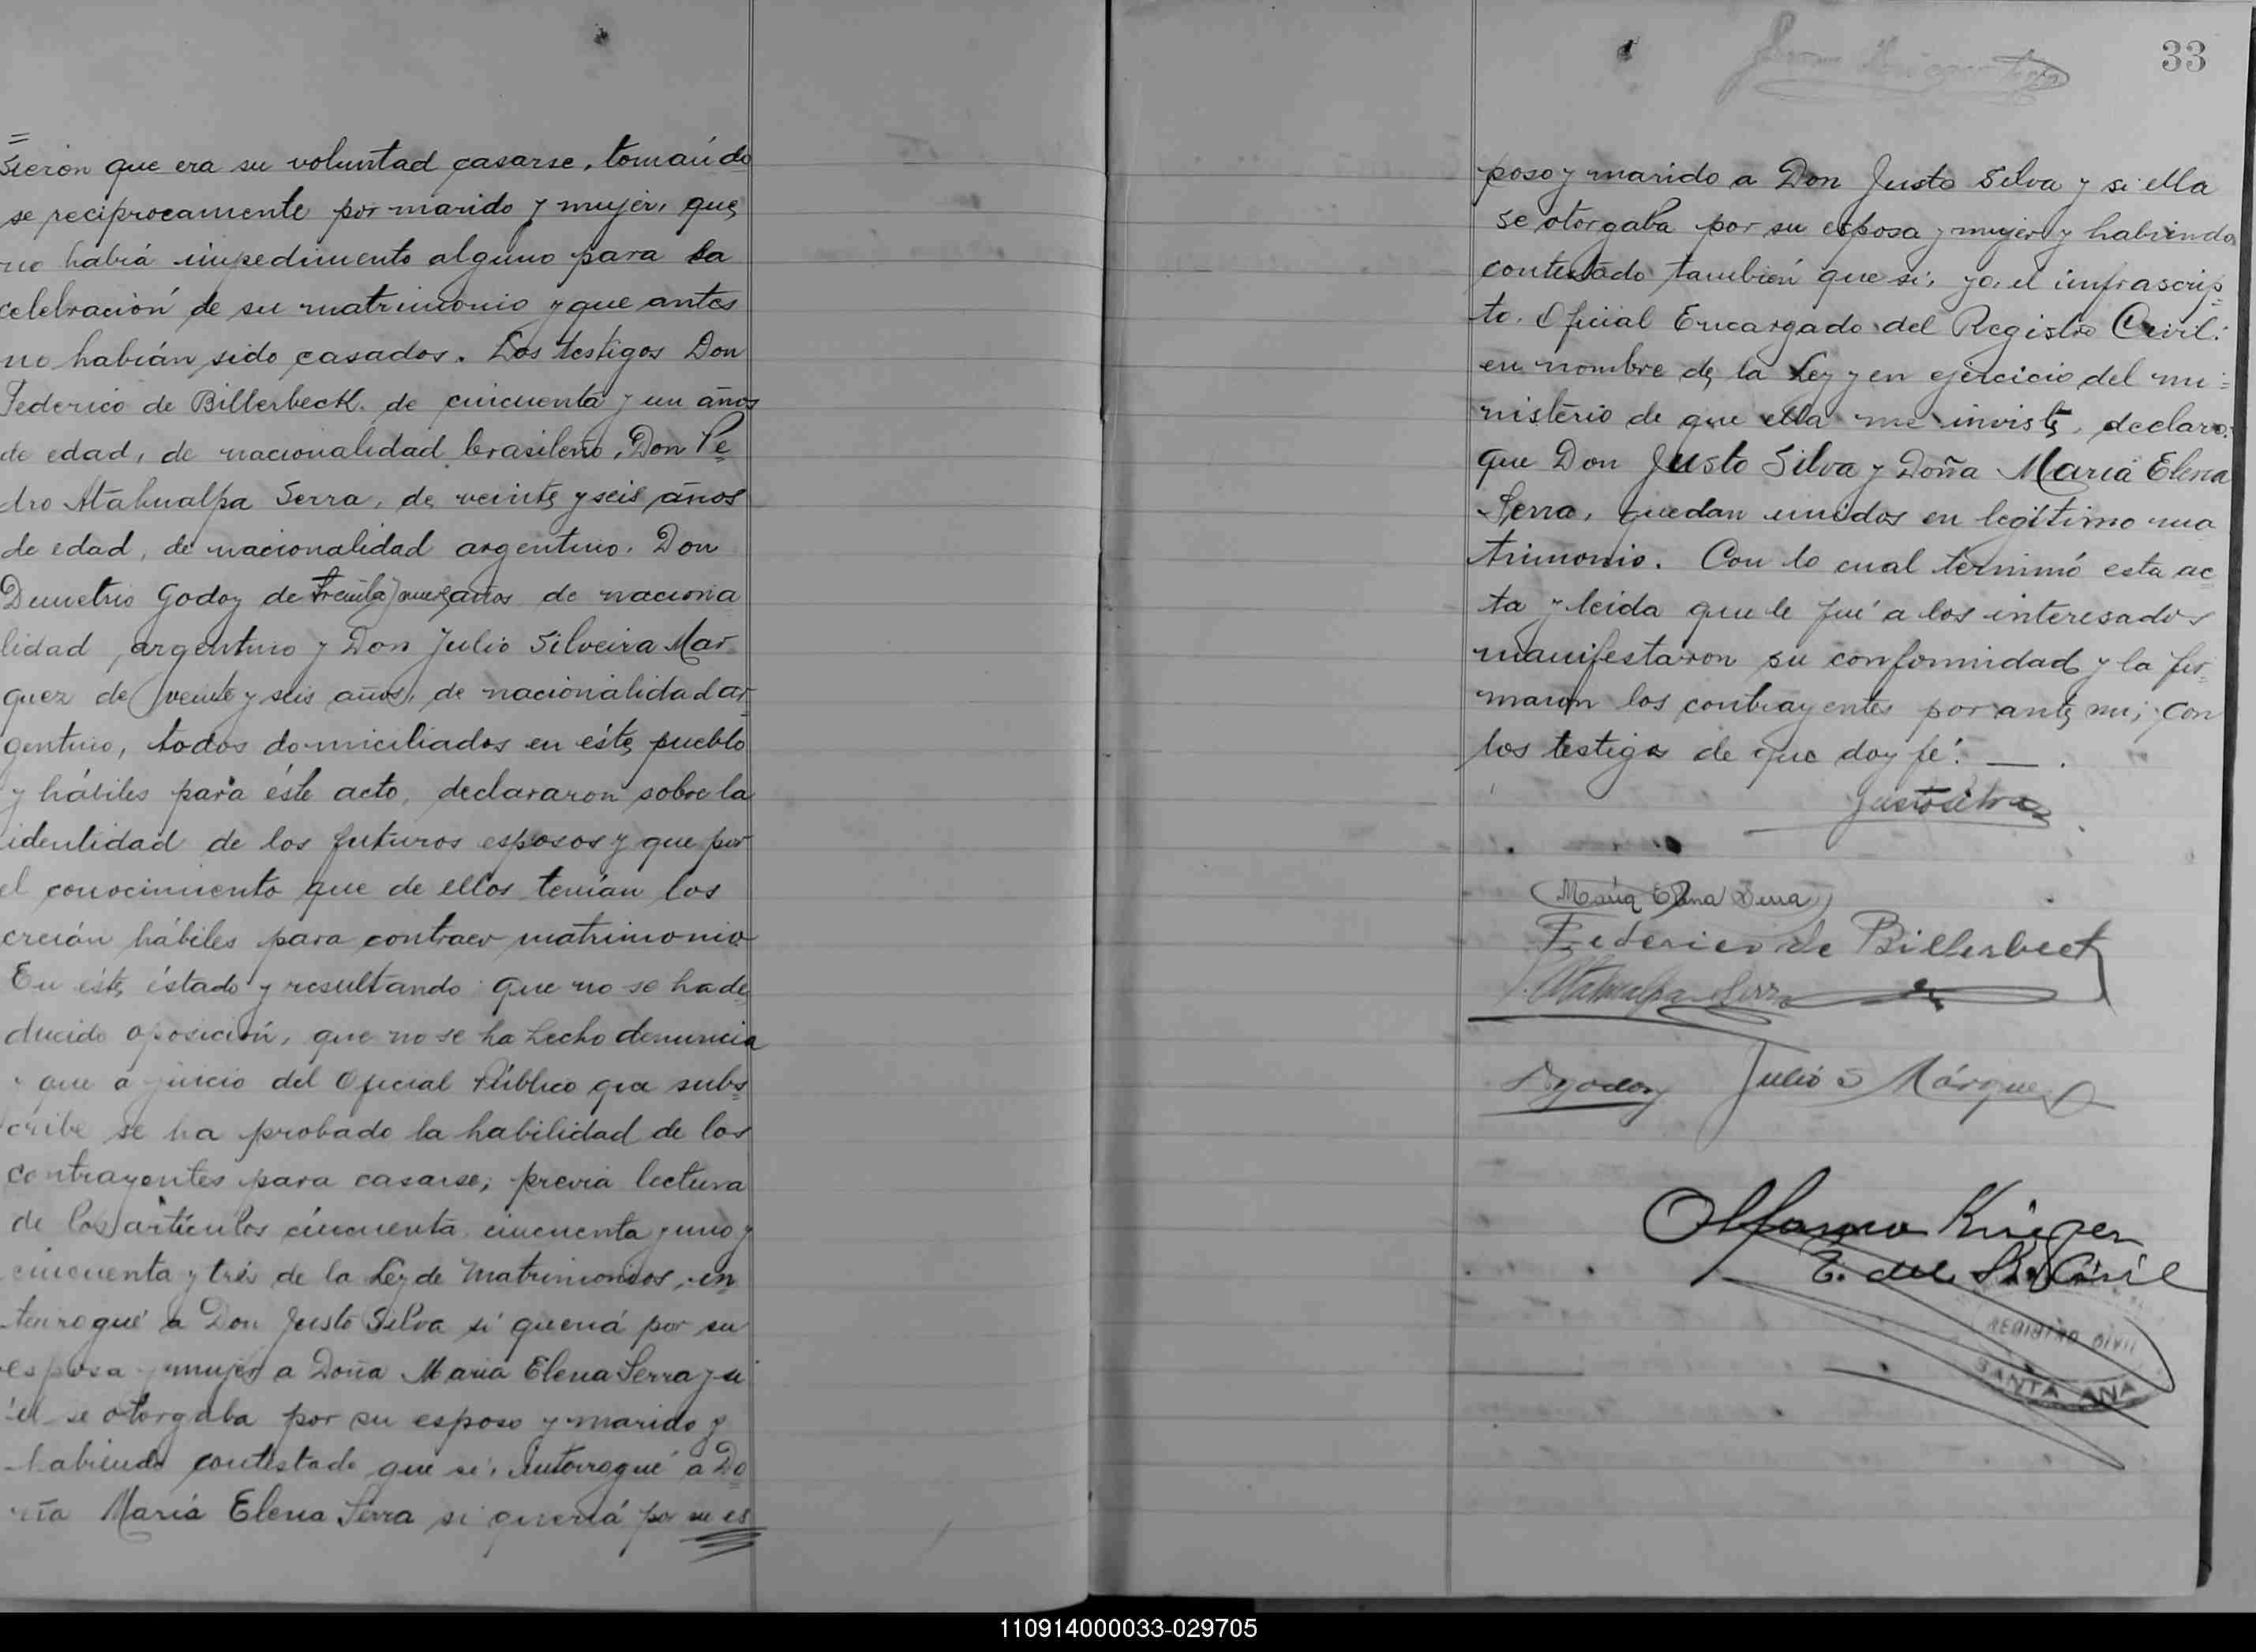 sieron que era su voluntad casarse, tomando
se reciprocamente por marido y mujer, que
no habiá impedimento alguno para la
celebración de su matrimonio y que antes
no habián sido casados. Los testigos Don
Federico de Billerbeck. de cincuenta y un años
de edad, de nacionalidad brasileño, Don Pe=
dro Atahualpa Serra, de veinte y seis años
de edad, de nacionalidad argentino. Don
Demetrio Godoy de treinta y años de naciona
lidad argentino y Don Julio Silveira Mar=
quez de veinte y seis años, de nacionalidad ar=
gentino, todos domiciliados en éste pueblo
y hábiles para éste acto, declararon sobre la
identidad de los futuros esposos y que por
el conocimiento que de ellos tenían los
creián hábiles para contraer matrimonio
En éste éstado y resultando que no se ha de=
ducido oposición, que no se ha hecho denuncia
que a juicio del Oficial Público que subs=
cribe se ha probado la habilidad de los
contrayentes para casarse; previa lectura
de los artículos cincuenta, cincuenta y uno y
cincuenta y trés de la Ley de Matrimonios, in=
terrogué a Don Justo Silva si queriá por su
esposa y mujer a Doña Maria Elena Serra y si
él se otorgaba por su esposo y marido y
habiendo contestado que si, interrogué a Do=
ña Mariá Elena Serra si queriá por su es
33
poso y marido a Don Justo Silva y si ella
se otorgaba por su esposa y mujer y habiendo
contestado también que si, yo, el infrascrip=
to. Oficial Encargado del Registro Civil:
en nombre de la Ley y en ejercicio del mi=
nisterio de que ella me inviste, declaro:
que Don Justo Silva y Doña Mariá Elena
Serra, quedan unidos en legítimo ma
trimonio. Con lo cual terminó esta ac=
ta y leida que le fué a los interesados
manifestaron su conformidad y la fir=
maron los contrayentes por ante mi, con
los testigos de que doy fé. —
Justo Silva
María Elena Serra
Federico de Billerbeck
P. Atahualpa Serra
D Godoy Julio S Márquez
Krieger
E. del R. Civil
REGISTRO CIVIL
SANTA ANA
110914000033-029705